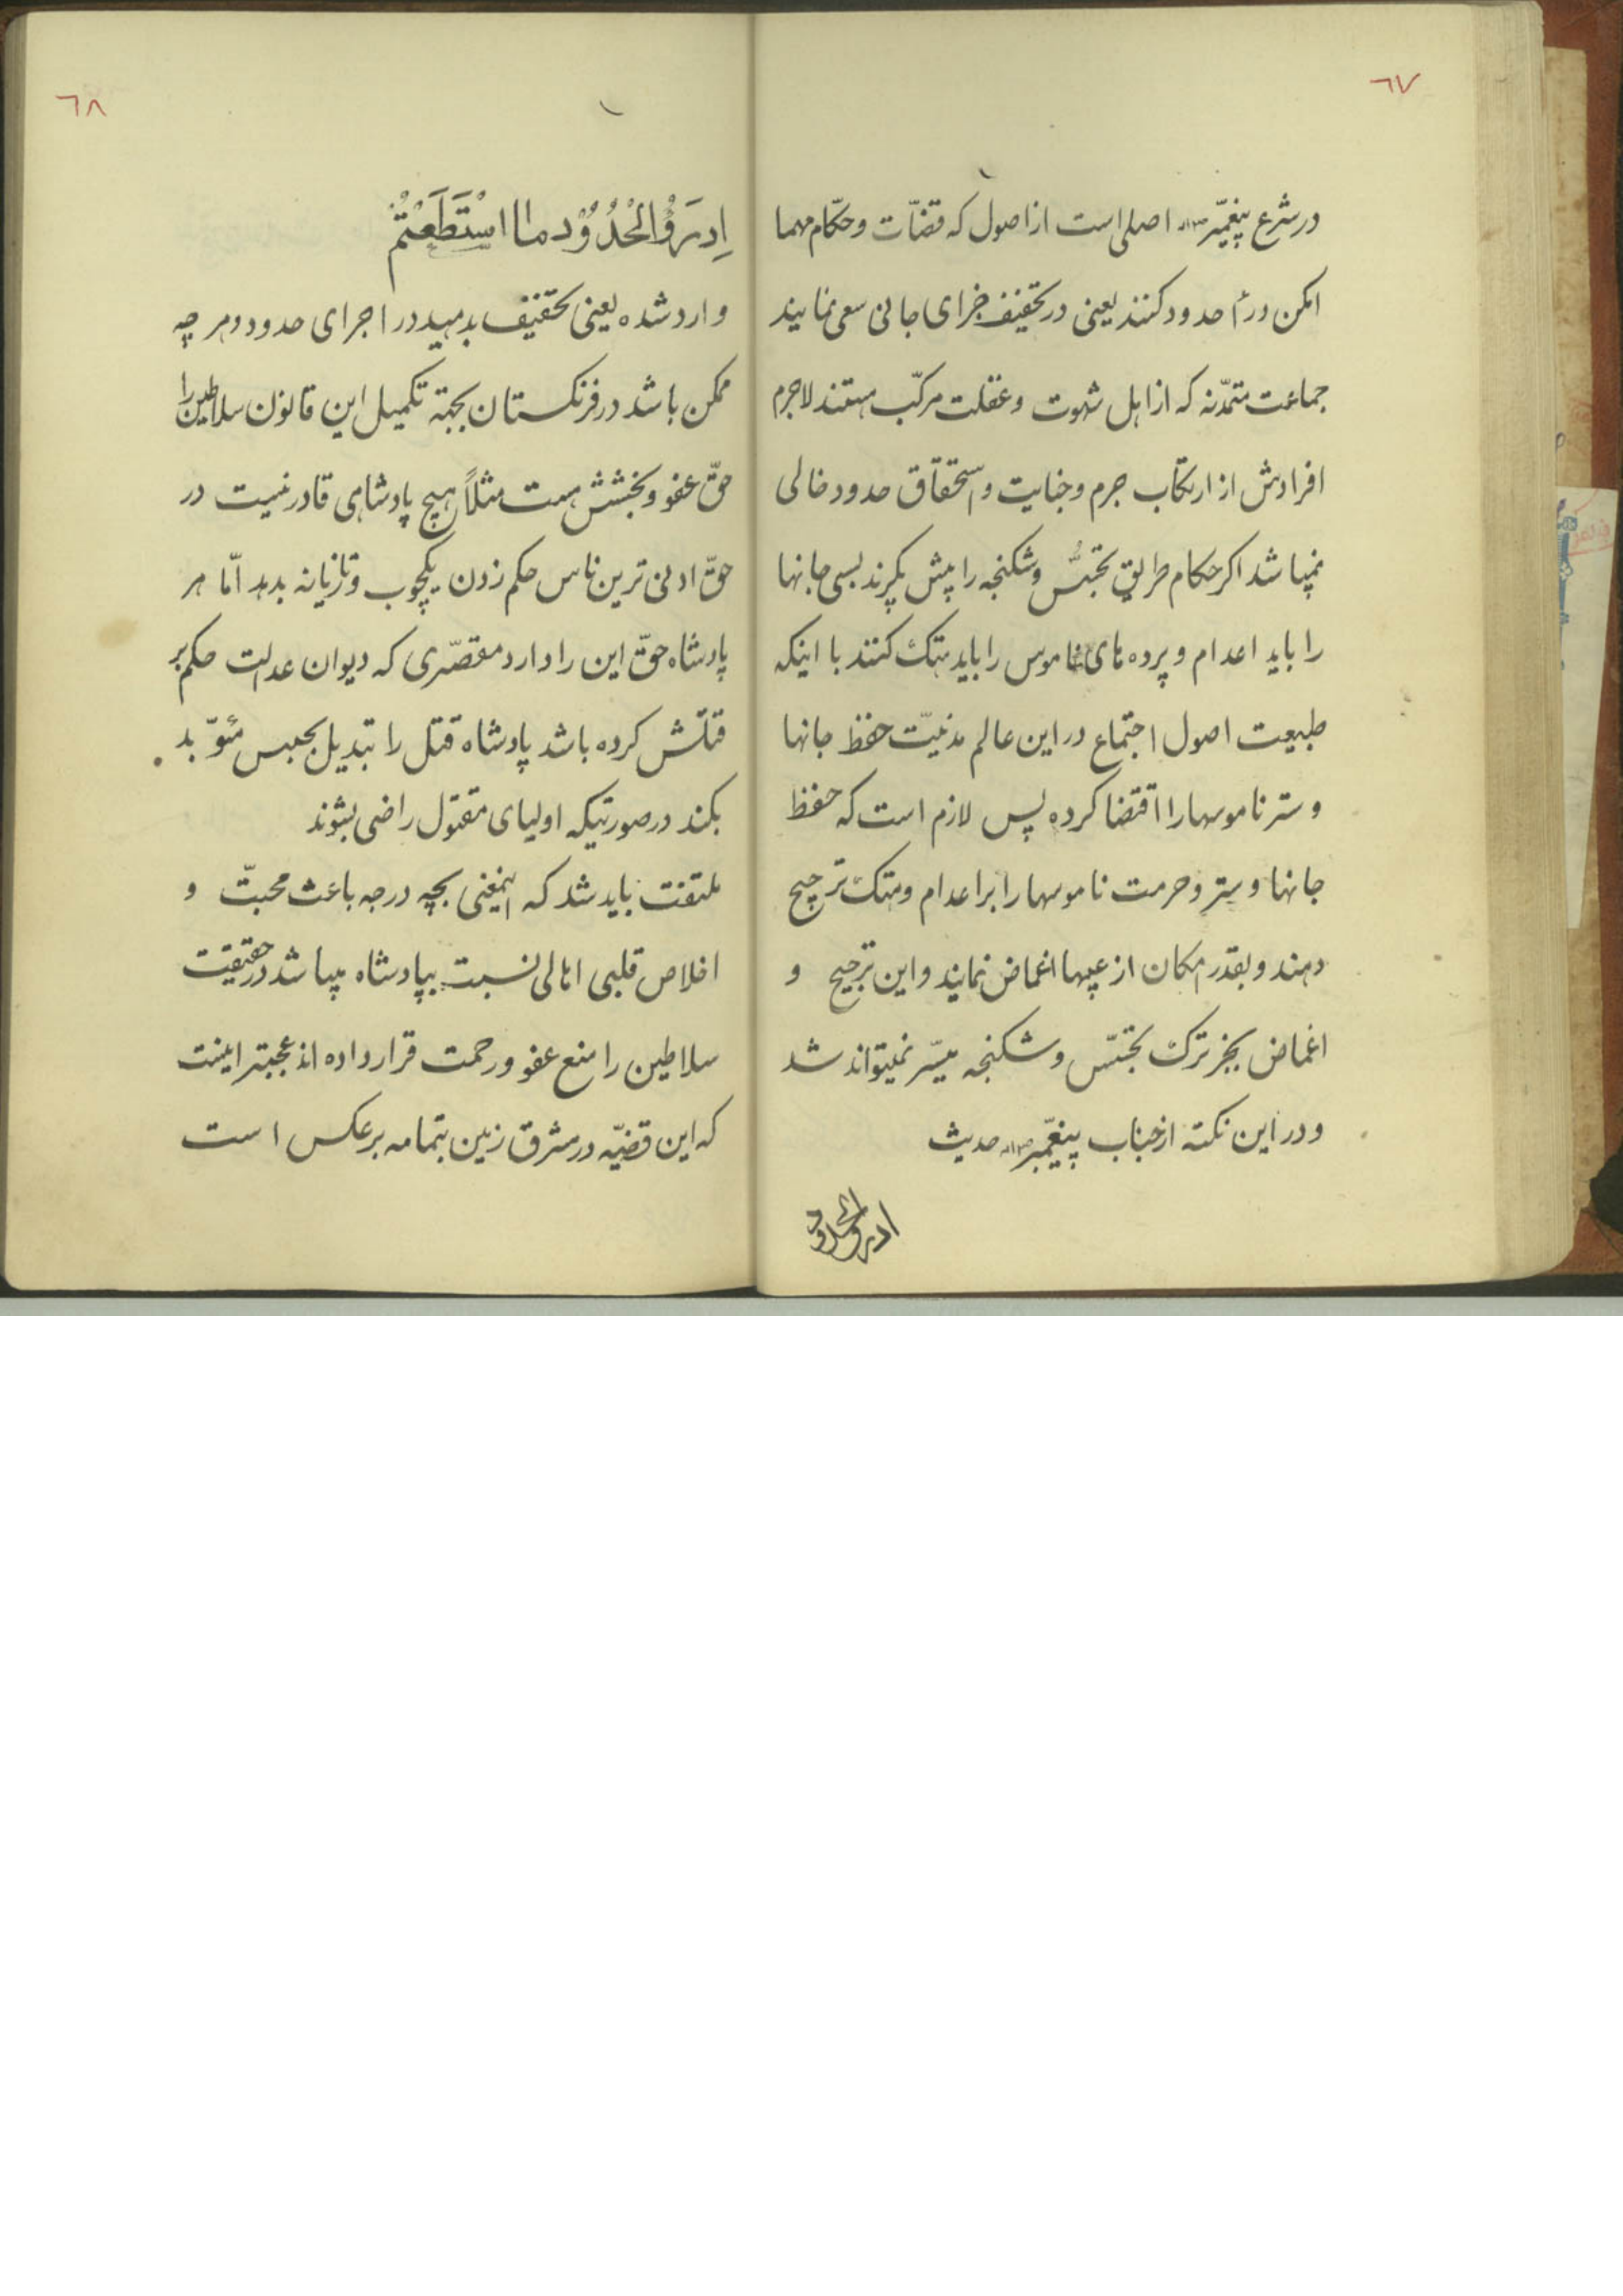 ٦٧
در شرع پیغمبر اصلی است از اصول که قضّات و حکّام مهما
امکن درأ حدود کنند یعنی در تخفیف جزای جانی سعی نمایند
جماعت متمدّنه که از اهل شهوت و غفلت مرکّب هستند لاجرم
افرادش از ارتکاب جرم و جنایت و استحقاق حدود خالی
نمیباشد اکر حکام طریق تجسّس و شکنجه را پیش بکیرند بسی جانها
را باید اعدام و پرده های ناموس را باید هتک کنند با اینکه
طبیعت اصول اجتماع در این عالم مدنیّت حفظ جانها
و ستر ناموسها را اقتضا کرده پس لازم است که حفظ
جانها و ستر و حرمت ناموسها را بر اعدام و هتک ترجیح
دهند و بقدر امکان از عیبها اغماض نمایند و این ترجیح و
اغماض بجز ترک تجسّس و شکنجه میسّر نمیتواند شد
و در این نکته از جناب پیغمّبر حدیث
ادرؤالحدود
٦٨
اِدرَؤُالْحُدُوْدَ مااسْتَطَعْتُمْ
وارد شده یعنی تخفیف بدهید در اجرای حدود هر چه
ممکن باشد در فرنکستان بجهة تکمیل این قانون سلاطین را
حقّ عفو و بخشش هست مثلاً هیچ پادشاهی قادر نیست در
حقّ ادنی ترین ناس حکم زدن یکچوب و تازیانه بدهد امّا هر
پادشاه حقّ این را دارد مقصّری که دیوان عدالت حکم بر
قتلش کرده باشد پادشاه قتل را تبدیل بحبس مئوّبد
بکند در صورتیکه اولیای مقتول راضی بشوند
ملتفت باید شد که اینمعنی بچه درجه باعث محبّت و
اخلاص قلبی اهالی نسبت بپادشاه میباشد در حقیقت
سلاطین را منبع عفو و رحمت قرار داده اند عجبتر اینست
که این قضیّه در مشرق زمین بتمامه بر عکس است